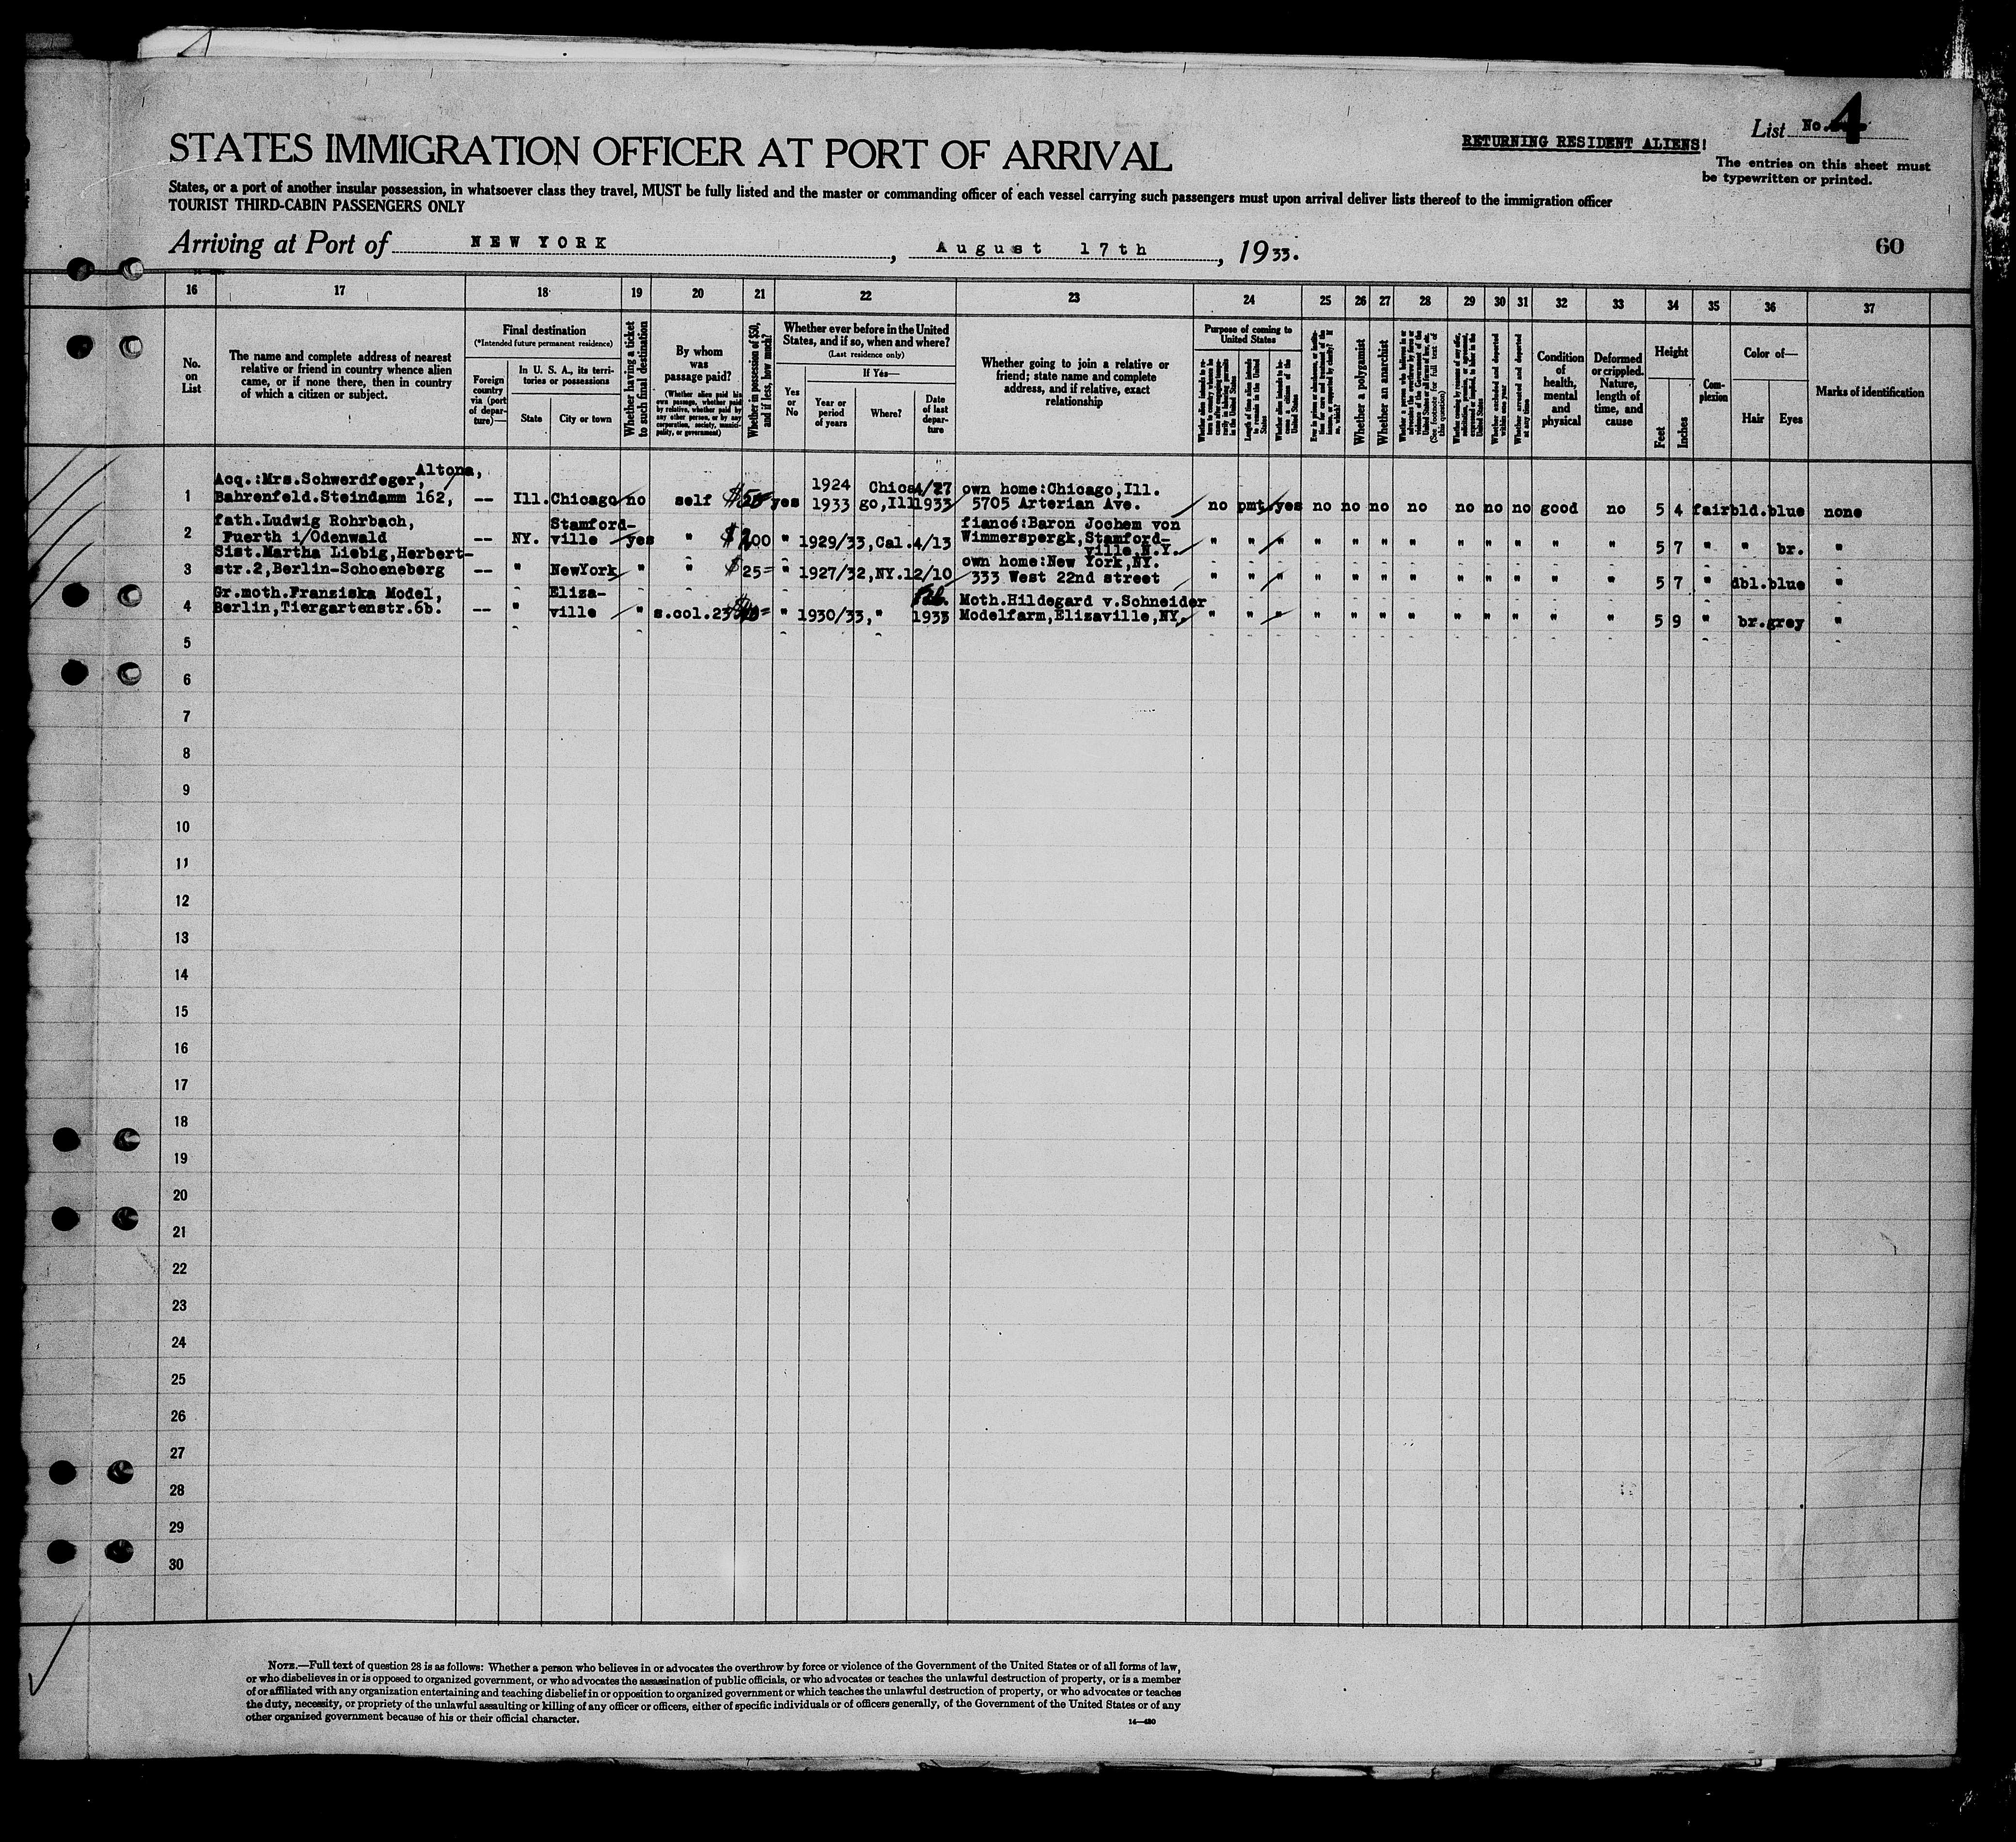 List No. 4
RETURNING RESIDENT ALIENS!
The entries on this sheet must
be typewritten or printed.
STATES IMMIGRATION OFFICER AT PORT OF ARRIVAL
States, or a port of another insular possession, in whatsoever class they travel, MUST be fully listed and the master or commanding officer of each vessel carrying such passengers must upon arrival deliver lists thereof to the immigration officer
TOURIST THIRD-CABIN PASSENGERS ONLY
Arriving at Port of NEW YORK, August 17th, 1933.
60
16 17 18 19 20 21 22 23 24 25 26 27 28 29 30 31 32 33 34 35 36 37
No. on List
The name and complete address of nearest
relative or friend in country whence alien
came, or if none there, then in country
of which a citizen or subject.
Final destination
(*Intended future permanent residence)
Foreign country via (port of departure)—
In U. S. A., its territories or possessions
State
City or town
Whether having a ticket to such final destination
By whom was passage paid?
(Whether alien paid his own passage, whether paid by relative, whether paid by any other person, or by any corporation, society, municipality, or government)
Whether in possession of $50, and if less, how much?
Whether ever before in the United
States, and if so, when and where?
(Last residence only)
Yes or No
If Yes—
Year or period of years
Where?
Date of last departure
Whether going to join a relative or
friend; state name and complete
address, and if relative, exact
relationship
Purpose of coming to United States
Length of time alien intends to remain in the United States
Whether alien intends to become a citizen of the United States
Whether a polygamist
Whether an anarchist
Whether excluded and deported within one year
Whether arrested and deported at any time
Condition of health, mental and physical
Deformed or crippled. Nature, length of time, and cause
Height
Feet
Inches
Complexion
Color of—
Hair
Eyes
Marks of identification
Altona,
Acq.:Mrs.Schwerdfeger, 1924 Chica 4/27 own home:Chicago,Ill.
1 Bahrenfeld.Steindamm 162, -- Ill. Chicago no self $50 yes 1933 go,Ill 1933 5705 Arterian Ave. no pmt. yes no no no no no no no good no 5 4 fair bld. blue none
fath.Ludwig Rohrbach, Stamford- fiancé:Baron Jochem von
2 Fuerth i/Odenwald -- NY. ville yes " $200 " 1929/33,Cal. 4/13 Wimmerspergk,Stamford- " " " " " " " " " " " " 5 7 " " br. "
Sist.Martha Liebig,Herbert- ville,N.Y.
own home:New York,NY.
3 str.2,Berlin-Schoeneberg -- " NewYork " " $25= " 1927/32,NY. 12/10 333 West 22nd street " " " " " " " " " " " " 5 7 " dbl. blue "
Gr.moth.Franziska Model, Eliza- Feb. Moth.Hildegard v.Schneider
4 Berlin,Tiergartenstr.6b. -- " ville " s.col.23 " 1930/33, " 1933 Modelfarm,Elizaville,NY. " " " " " " " " " " " " 5 9 " br. grey "
5
6
7
8
9
10
11
12
13
14
15
16
17
18
19
20
21
22
23
24
25
26
27
28
29
30
NOTE.—Full text of question 28 is as follows: Whether a person who believes in or advocates the overthrow by force or violence of the Government of the United States or of all forms of law,
or who disbelieves in or is opposed to organized government, or who advocates the assassination of public officials, or who advocates or teaches the unlawful destruction of property, or is a member
of or affiliated with any organization entertaining and teaching disbelief in or opposition to organized government or which teaches the unlawful destruction of property, or who advocates or teaches
the duty, necessity, or propriety of the unlawful assaulting or killing of any officer or officers, either of specific individuals or of officers generally, of the Government of the United States or of any
other organized government because of his or their official character.
14—430